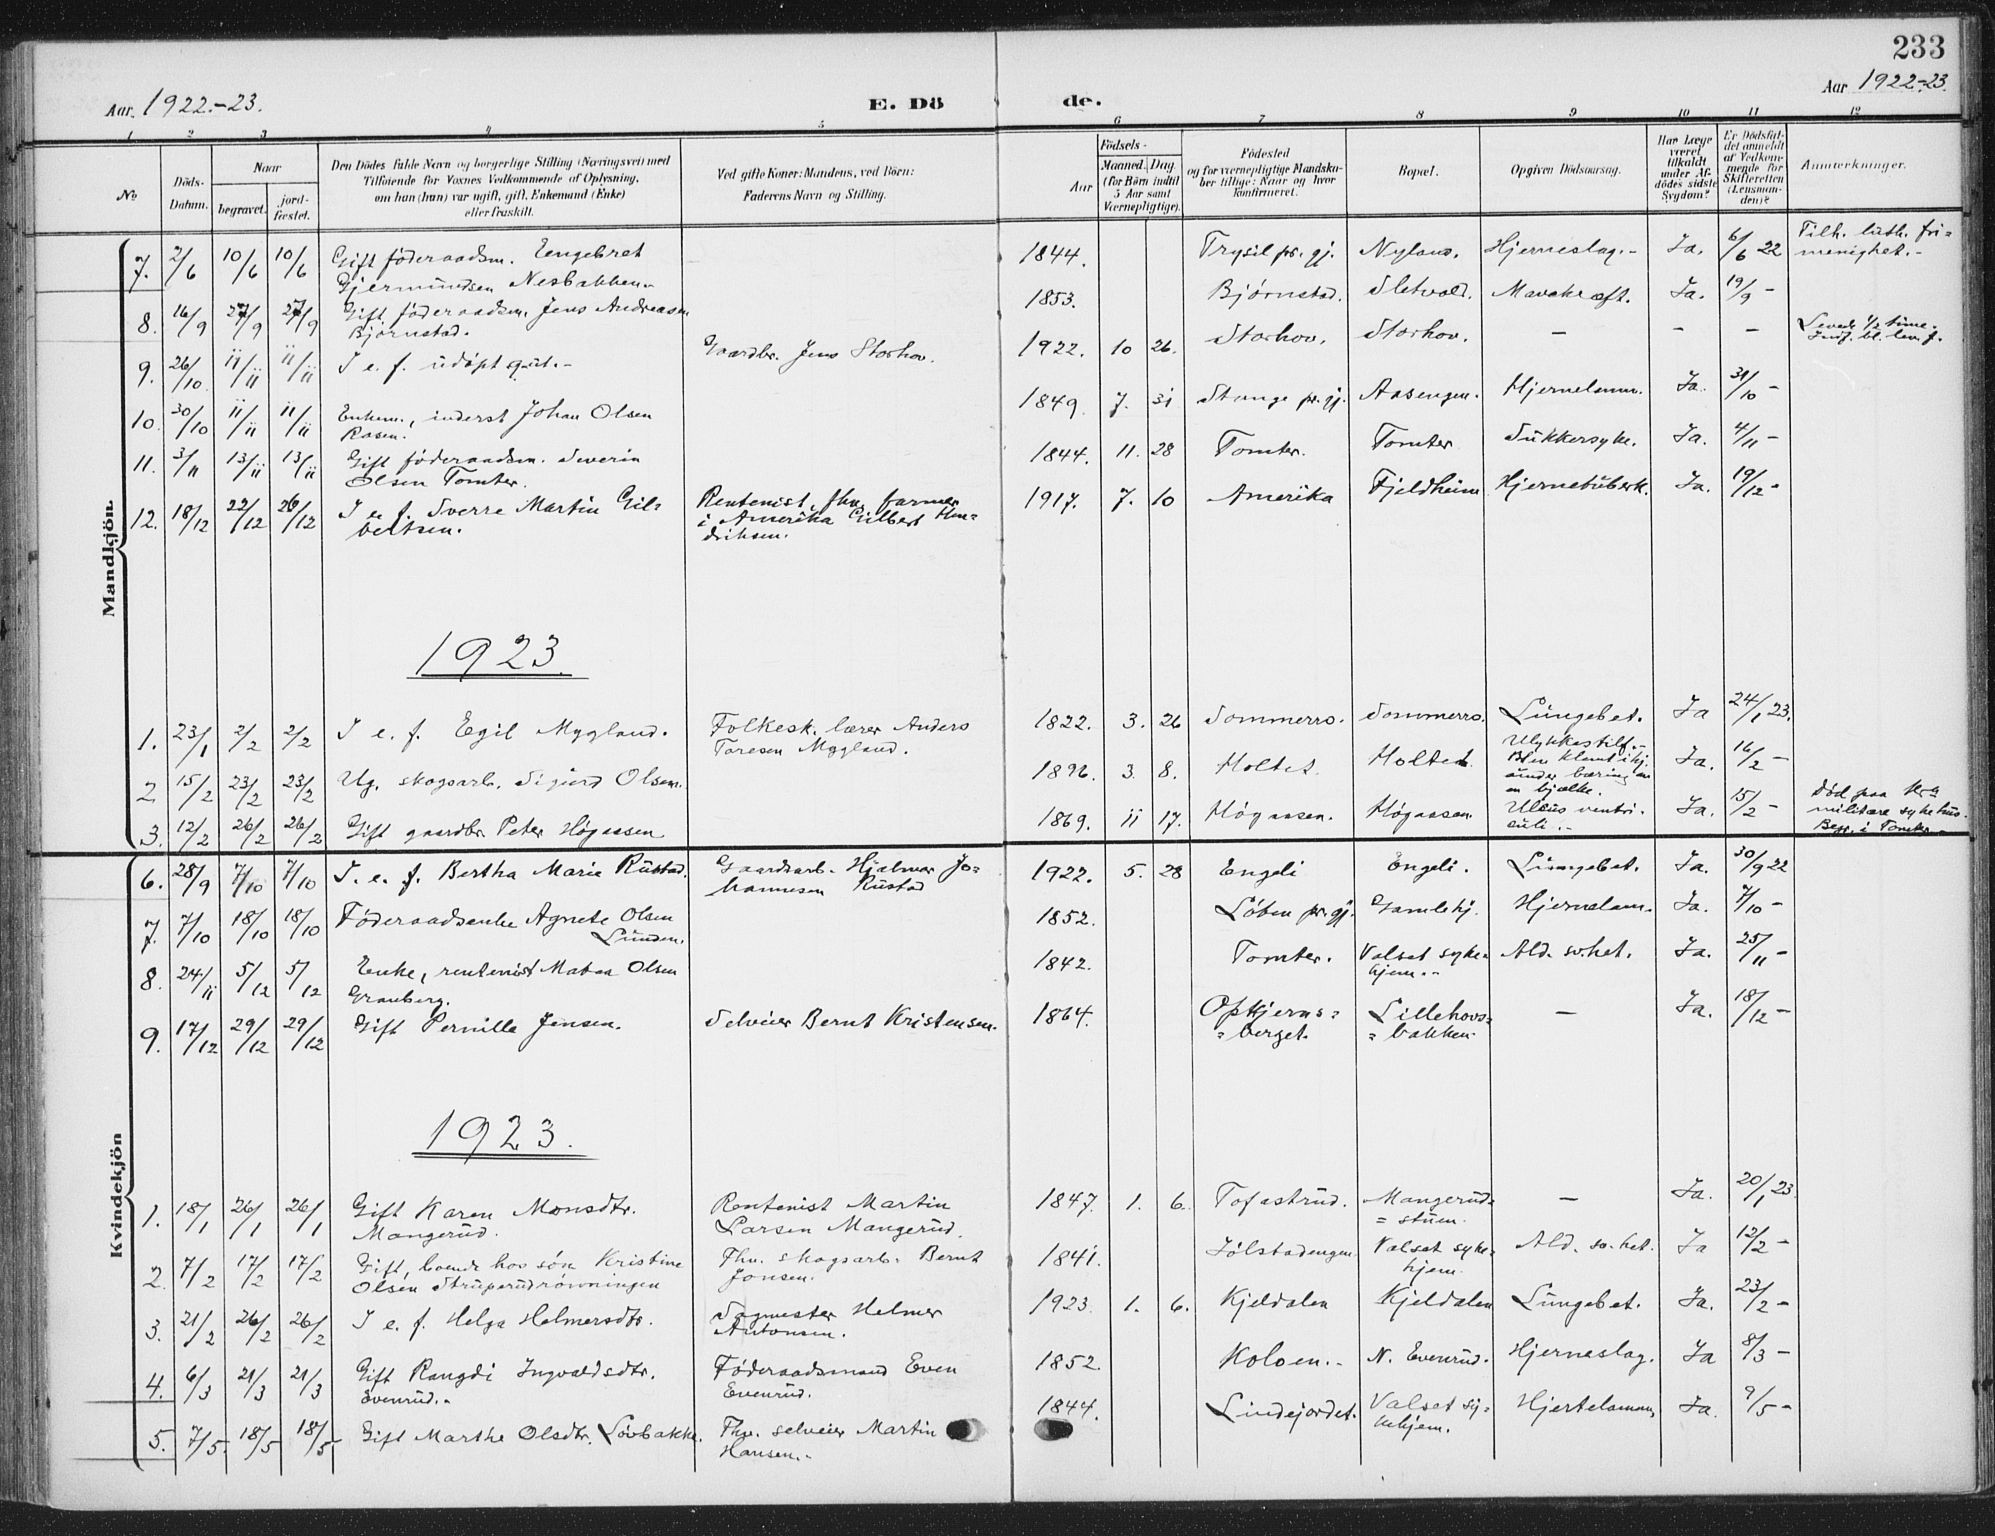 233
Aar 1922.-23.
E. Dö
de.
Aar 1922-23.
1 2 3 4 5 6 7 8 9 10 11 12
No.
Döds-
Datum.
Naar
begravet.
jord-
fæstet.
Den Dödes fulde Navn og borgerlige Stilling (Næringsvei) med
Tilföiende for Voxnes Vedkommende af Oplysning,
om han (hun) var ugift, gift, Enkemand (Enke)
eller fraskilt.
Ved gifte Koner: Mandens, ved Börn:
Faderens Navn og Stilling.
Födsels-
Aar
Maaned. Dag.
(for Börn indtil
5 Aar samt
Værnepligtige).
Födested
og for værnepligtige Mandska-
ber tillige: Naar og hvor
konfirmeret.
Bopæl.
Opgiven Dödsaarsag.
Har Læge
været
tilkaldt
under Af-
dödes sidste
Sygdom?
Er Dödsfal-
det anmeldt
af Vedkom-
mende for
Skifteretten
(Lensman-
den)?
Anmærkninger.
Mandkjön.
7. 2/6 10/6 10/6 Gift föderaadsm. Engebret
Gjermundsen Nesbakken.-
1844. Trysil pr. gj. Nyland. Hjerneslag.- Ja. 6/6 22
Tilh. luth. fri=
menighet.-
8. 16/9 27/9 27/9 Gift föderaadsm. Jens Andreasen
Björnstad.
1853. Bjørnstad. Sletvold. Mavekræft. Ja. 19/9 -
9. 26/10 11/11 11/11 I e. f. udöpt gut.- Gaardbr. Jens Storhov.
1922. 10 26. Storhov. Storhov. - - -
Levede 1/2 time.
10. 30/10 11/11 11/11 Enkem., inderst Johan Olsen
Rosen.
1849. 7. 31 Stange pr. gj. Aasengen. Hjernelamm. Ja. 31/10 -
11. 3/11 13/11 13/11 Gift föderaadsm. Severin
Olsen Tomter.
1844. 11. 28 Tomter. Tomter. Sukkersyke. Ja. 4/11 -
12. 18/12 22/12 26/12 I e. f. Sverre Martin Gil=
bertsen.
Rentenist, fhv. farmer
i Amerika Gilbert Hen=
driksen.
1917. 7. 10 Amerika Fjeldheim Hjernetuberk. Ja. 19/12 -
1923.
1. 23/1 2/2 2/2 I e. f. Egil Mygland.
Folkesk. lærer Anders
Toresen Mygland.
1822. 3. 26 Sommerro. Sommerro. Lungebet. Ja 24/1 23.
2 15/2 23/2 23/2 Ug. skogsarb. Sigurd Olsen.
1896. 3. 8. Holtet. Holtet. Ulykkestilf.-
Blev klemt ihj.
under bæring av
en bjelke.
Ja. 16/2 -
3. 12/2 26/2 26/2 Gift gaardbr. Peter Högaasen
1869. 11 17. Högaasen. Högaasen. Ulcus ventri=
culi.-
Ja. 15/2 -
Död paa Kr.a
militære sykehus.
Begr. i Tomter.-
Kvindekjön
6. 28/9 7/10 7/10 I. e. f. Bertha Marie Rustad.
Gaardsarb. Hjalmar Jo=
hannesen Rustad
1922. 5. 28 Engeli Engeli. Lungebet. Ja. 30/9 22
7. 7/10 18/10 18/10 Föderaadsenke Agnete Olsen
Lunden.
1852. Löten pr. gj. Gamlehj. Hjernelam. Ja. 7/10 -
8. 24/11 5/12 5/12 Enke, rentenist Matea Olsen
Granberg.
1842. Tomter. Valset syke=
hjem.-
Ald. sv.het. Ja. 25/11 -
9. 17/12 29/12 29/12 Gift Pernille Jensen. Selveier Bernt Kristensen.
1864. Opkjerns=
=berget.
Lillehovs=
=bakken.
- Ja. 18/12 -
1923.
1. 18/1 26/1 26/1 Gift Karen Monsdtr.
Mangerud.
Rentenist Martin
Larsen Mangerud.
1847. 1. 6. Tofastrud. Mangerud=
=stuen.
- Ja. 20/1 23.
2. 7/2 17/2 17/2 Gift, boende hos sön Kristine
Olsen Struperudrövningen
Fhv. skogsarb. Bernt
Jonsen.
1841. Jölstadengen Valset syke=
hjem.
Ald. sv.het. Ja 12/2 -
3. 21/2 26/2 26/2 I e. f. Helga Helmersdtr.
Sagmester Helmer
Antonsen.
1923. 1. 6. Kjeldalen Kjeldalen Lungebet. Ja. 23/2 -
4. 6/3 21/3 21/3 Gift Rangdi Ingvaldsdtr.
Evenrud.-
Föderaadsmand Even
Evenrud.
1852. Koloen.- N. Evenrud. Hjerneslag. Ja 8/3 -
5. 7/5 18/5 18/5 Gift Marthe Olsdtr. Lövbakke.
Fhv. selveier Martin
Hansen.-
1844. Lindejordet. Valset sy=
kehjem.
Hjertelamm. Ja. 9/5 -